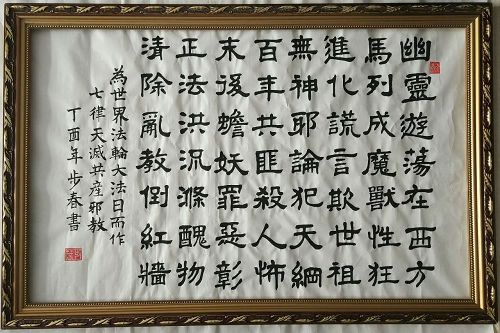 幽靈遊蕩在西方
馬列成魔獸性狂
進化謊言欺世祖
無神邪論犯天綱
百年共匪殺人怖
末後蟾妖罪惡彰
正法洪流滌醜物
清除亂教倒紅牆
為世界法輪大法日而作
七律天滅共產邪教
丁酉年步春書